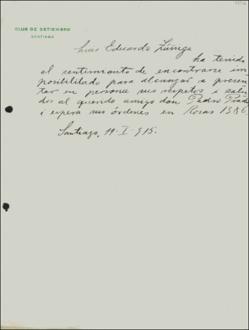 CLUB DE SETIEMBRE
SANTIAGO
Luis Eduardo Zúñiga
ha tenido
el sentimiento de encontrarse im
posibilitado para alcanzar a presen
tar en persona sus respetos i salu
dos al querido amigo don Pedro Prado
i espera sus órdenes en Rosas 1986.
Santiago, 19-I-915.